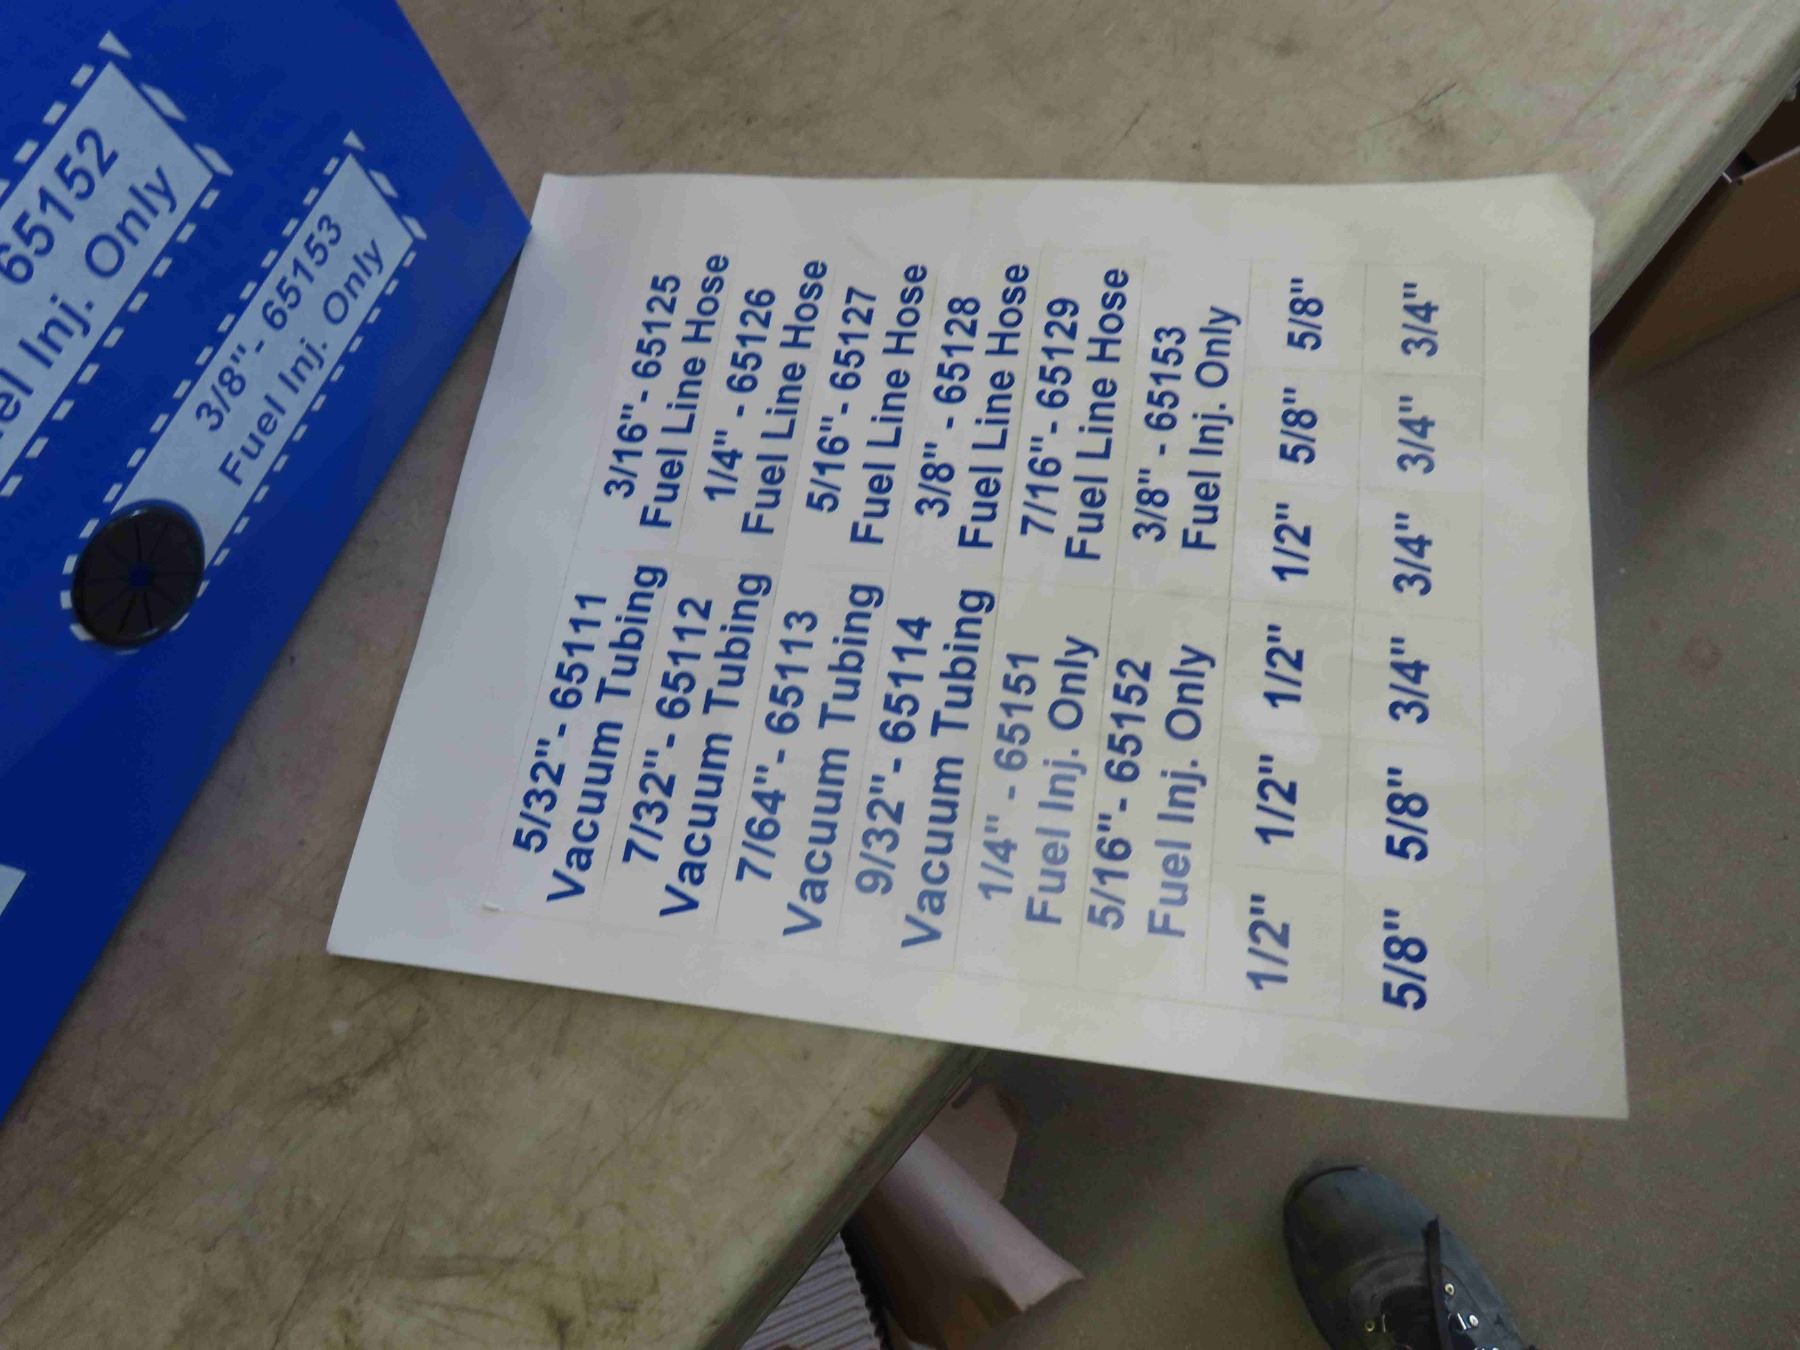 65152
el Inj. Only
3/8"- 65153
Fuel Inj. Only
5/32"- 65111
Vacuum Tubing
3/16"- 65125
Fuel Line Hose
7/32"- 65112
Vacuum Tubing
1/4" - 65126
Fuel Line Hose
7/64"- 65113
Vacuum Tubing
5/16"- 65127
Fuel Line Hose
9/32"- 65114
Vacuum Tubing
3/8" - 65128
Fuel Line Hose
1/4" - 65151
Fuel Inj. Only
7/16"- 65129
Fuel Line Hose
5/16"- 65152
Fuel Inj. Only
3/8" - 65153
Fuel Inj. Only
1/2" 1/2" 1/2" 1/2" 5/8" 5/8"
5/8" 5/8" 3/4" 3/4" 3/4" 3/4"